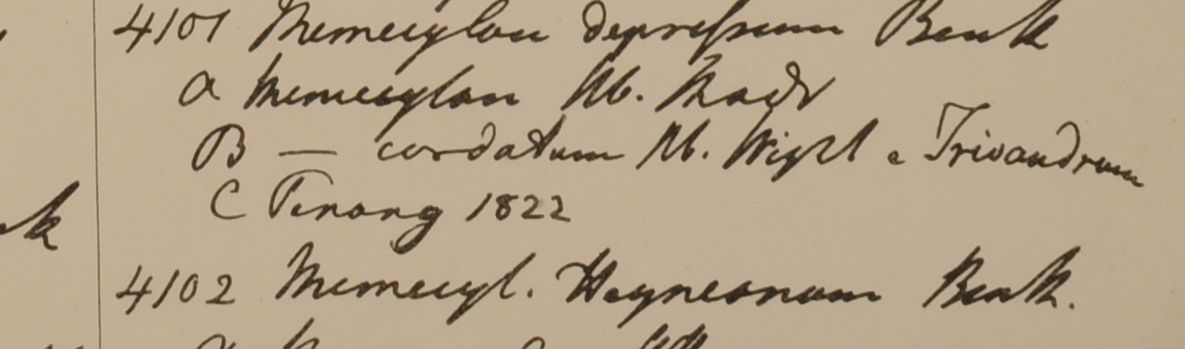 4101 Memecylon depressum Benth
a Memecylon Hb. Madr
B — cordatum Hb. Wight e Trivandrum
C Penang 1822
4102 Memecyl. Heyneanum Benth.